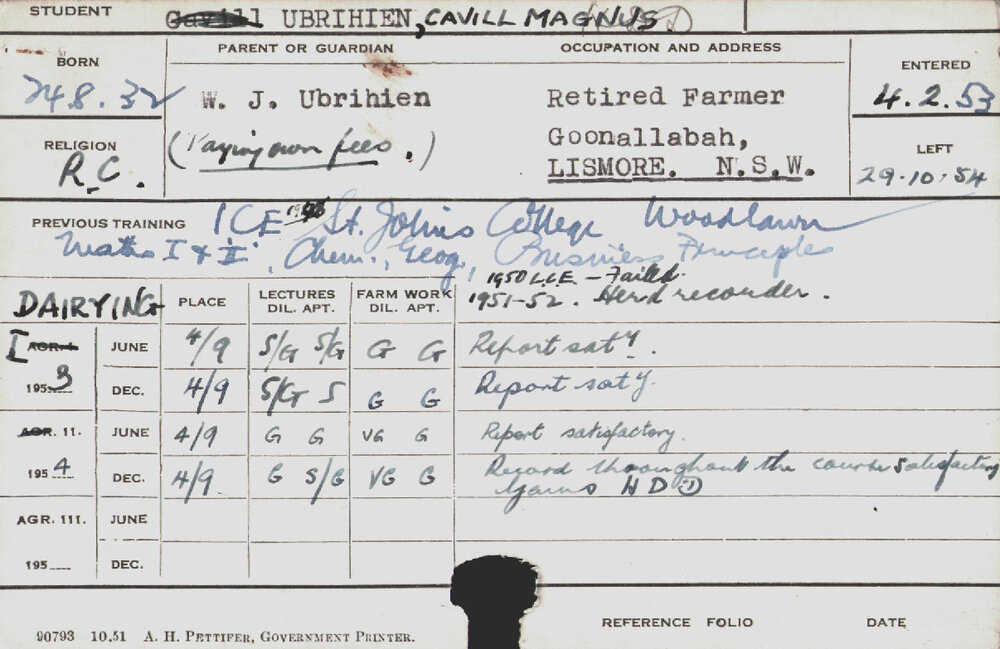 STUDENT Cavill UBRIHIEN, CAVILL MAGNUS
BORN PARENT OR GUARDIAN OCCUPATION AND ADDRESS ENTERED
24.8.32 W. J. Ubrihien Retired Farmer 4.2.53
RELIGION (Paying own fees.) Goonallabah, LEFT
R.C. LISMORE. N.S.W. 29.10.54
PREVIOUS TRAINING ICE St. Johns College Woodlawn
Maths I & II, Chem., Geog, Business Principles
1950 L.C.E – Failed.
1951-52. Herd recorder.
DAIRYING PLACE LECTURES DIL. APT. FARM WORK DIL. APT.
I AGR. I JUNE 4/9 S/G S/G G G Report sat y.
1953 DEC. 4/9 S/G S G G Report sat y.
AGR. II. JUNE 4/9 G G VG G Report satisfactory.
1954 DEC. 4/9 G S/G VG G Record throughout the course satisfactory
Gains H D
AGR. III. JUNE
195 DEC.
REFERENCE FOLIO DATE
90793 10.51 A. H. PETTIFER, GOVERNMENT PRINTER.